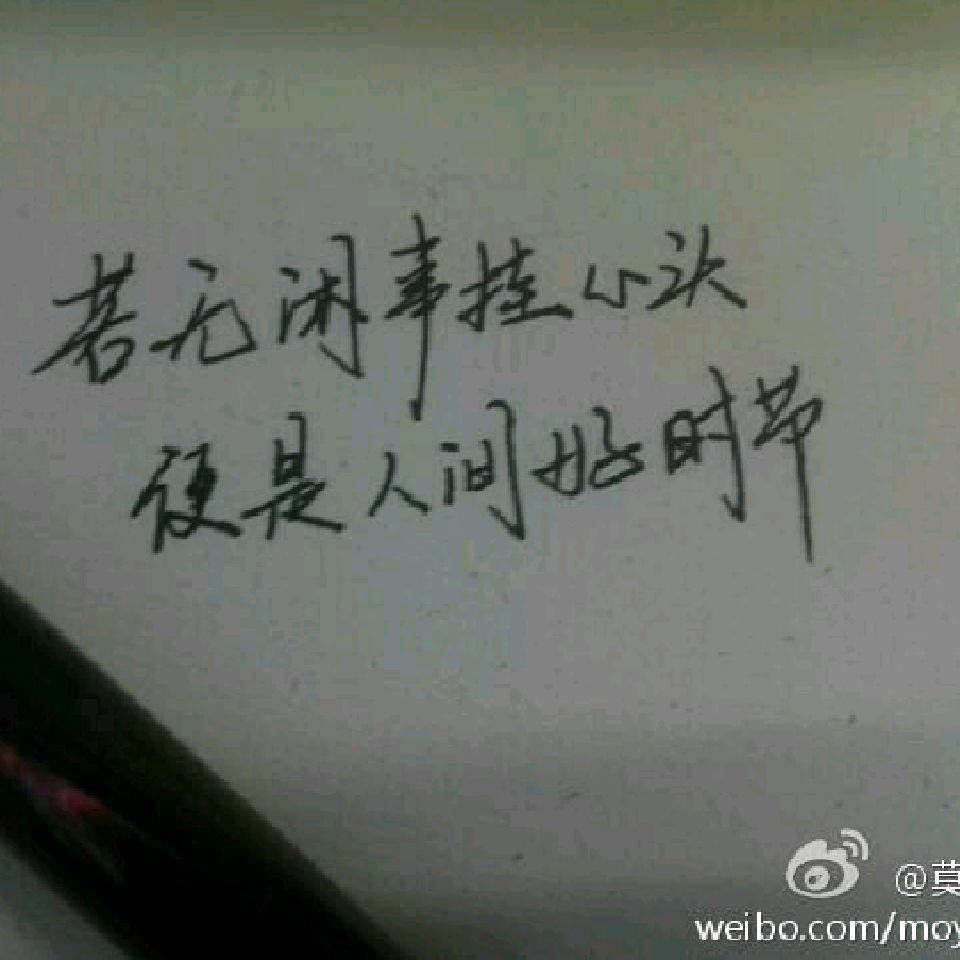 若无闲事挂心头
便是人间好时节
@莫
weibo.com/moy